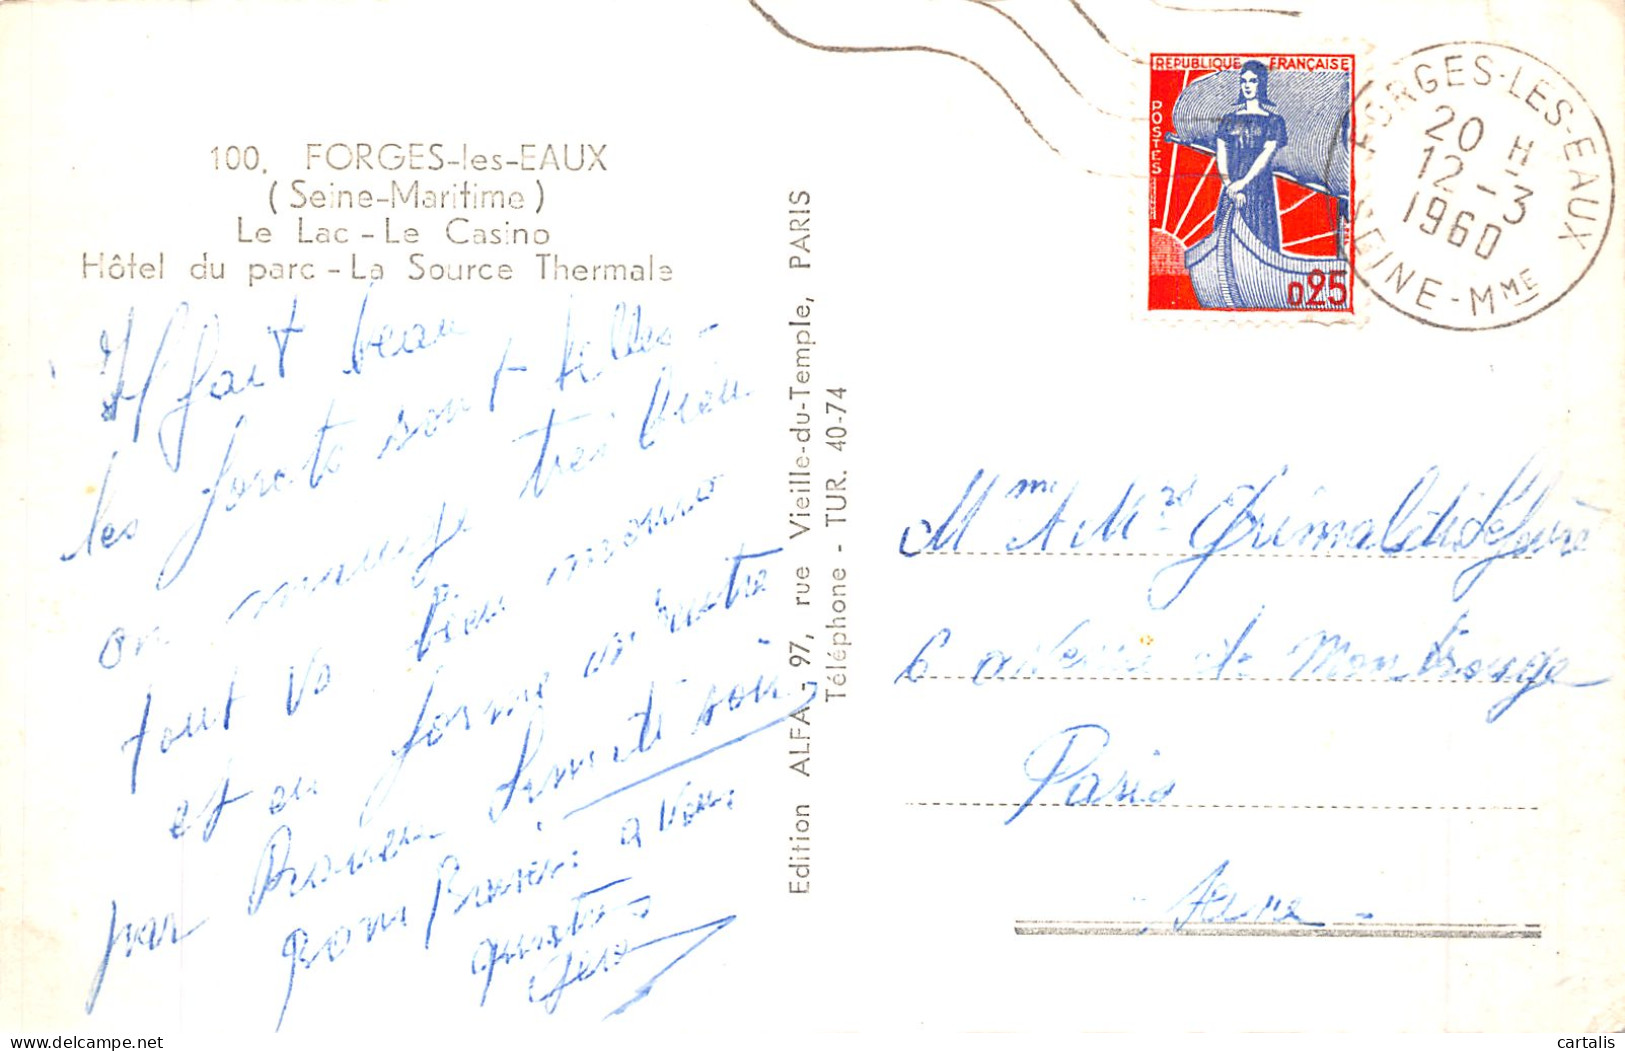 100. FORGES-les-EAUX
(Seine-Maritime)
Le Lac - Le Casino
Hôtel du parc - La Source Thermale
Il fait beau
les forats sont belles -
on mange très bien.
tout va bien
et en forme
par
Bons Baisers à
Edition ALFA - 97, rue Vieille-du-Temple, PARIS
Téléphone - TUR. 40-74
REPUBLIQUE FRANÇAISE
POSTES
0,25
FORGES-LES-EAUX
20 H
12 - 3
1960
SEINE-MME
Mme & Mrs Grimaldi
6 avenue de Montrouge
Paris
Seine -
cartalis